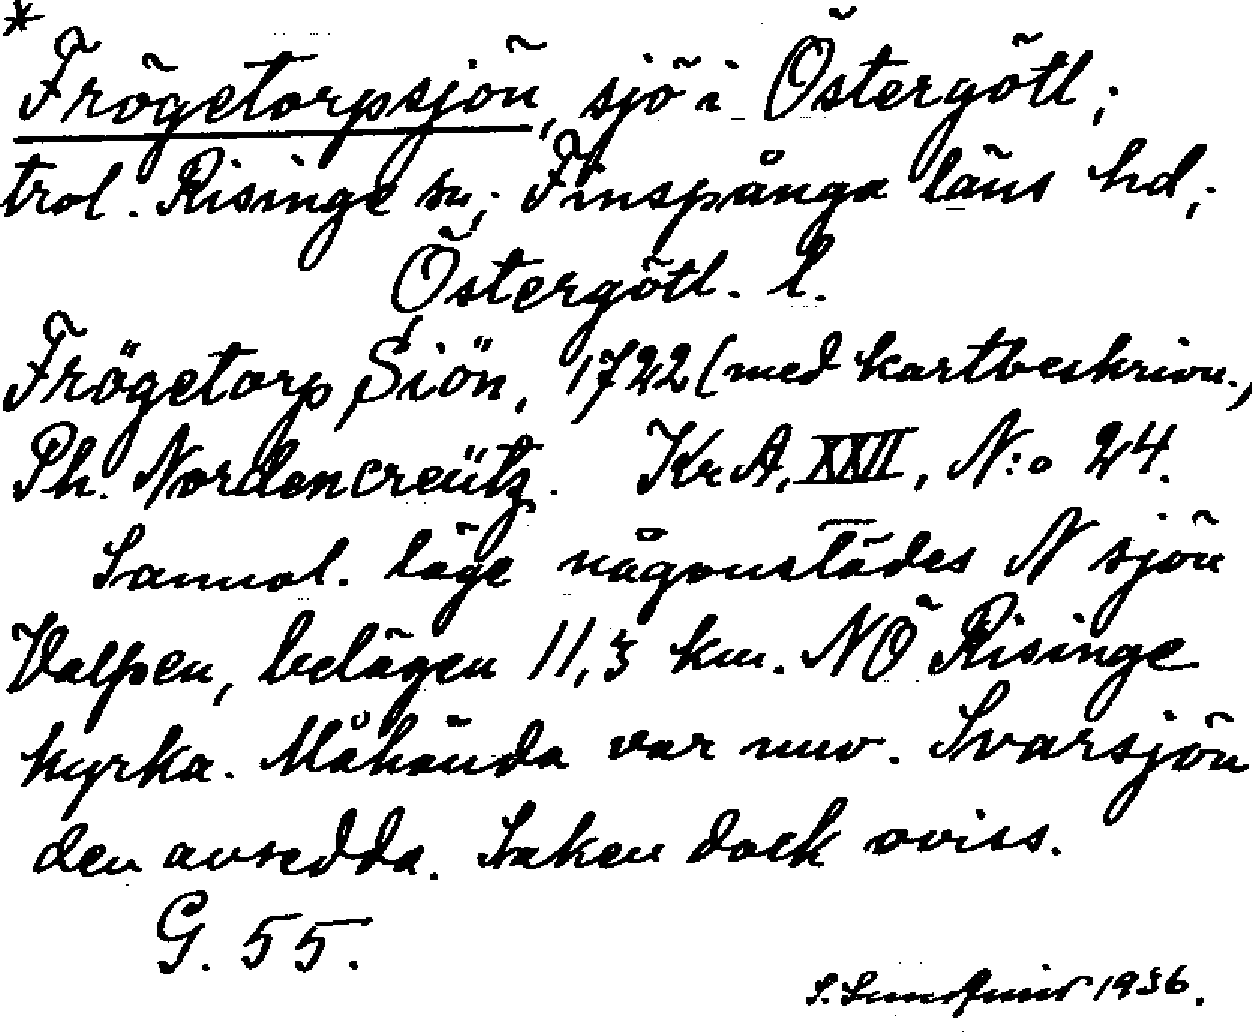 *
Frögetorpsjön, sjö i Östergötl;
trol. Risinge sn; Finspånga läns hd,
Östergötl. l.
Frögetorp Siön, 1722 (med kartbeskrivn.,
Ph. Nordencreütz. KrA, XXII, N:o 24.
Sannol. läge någonstädes N sjön
Valpen, belägen 11,3 km. NÖ Risinge
kyrka. Måhända var nuv. Svarsjön
den avsedda. Saken dock oviss.
G. 55.
S. Lundquist 1936.